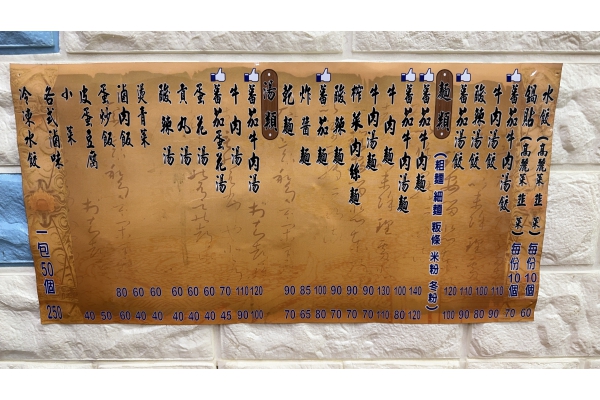 水餃(高麗菜 韭菜)每份10個 60
鍋貼(高麗菜 韭菜)每份10個 70
蕃茄牛肉湯餃 110 90
牛肉湯餃 100 80
酸辣湯餃 110 90
蕃茄湯餃 120 100
麵類 (粗麵 細麵 粄條 米粉 冬粉)
蕃茄牛肉麵 140 120
蕃茄牛肉湯麵 100 80
牛肉麵 130 110
牛肉湯麵 90 70
榨菜肉絲麵 90 70
酸辣麵 90 70
蕃茄麵 100 80
炸醬麵 85 65
乾麵 90 70
湯類
蕃茄牛肉湯 120 100
牛肉湯 110 90
蕃茄蛋花湯 70 45
蛋花湯 60 40
貢丸湯 60 40
酸辣湯 60 40
燙青菜 60 40
滷肉飯 60 40
蛋炒飯 80 60
皮蛋豆腐 50
小菜 40
各式滷味
冷凍水餃 一包50個 250